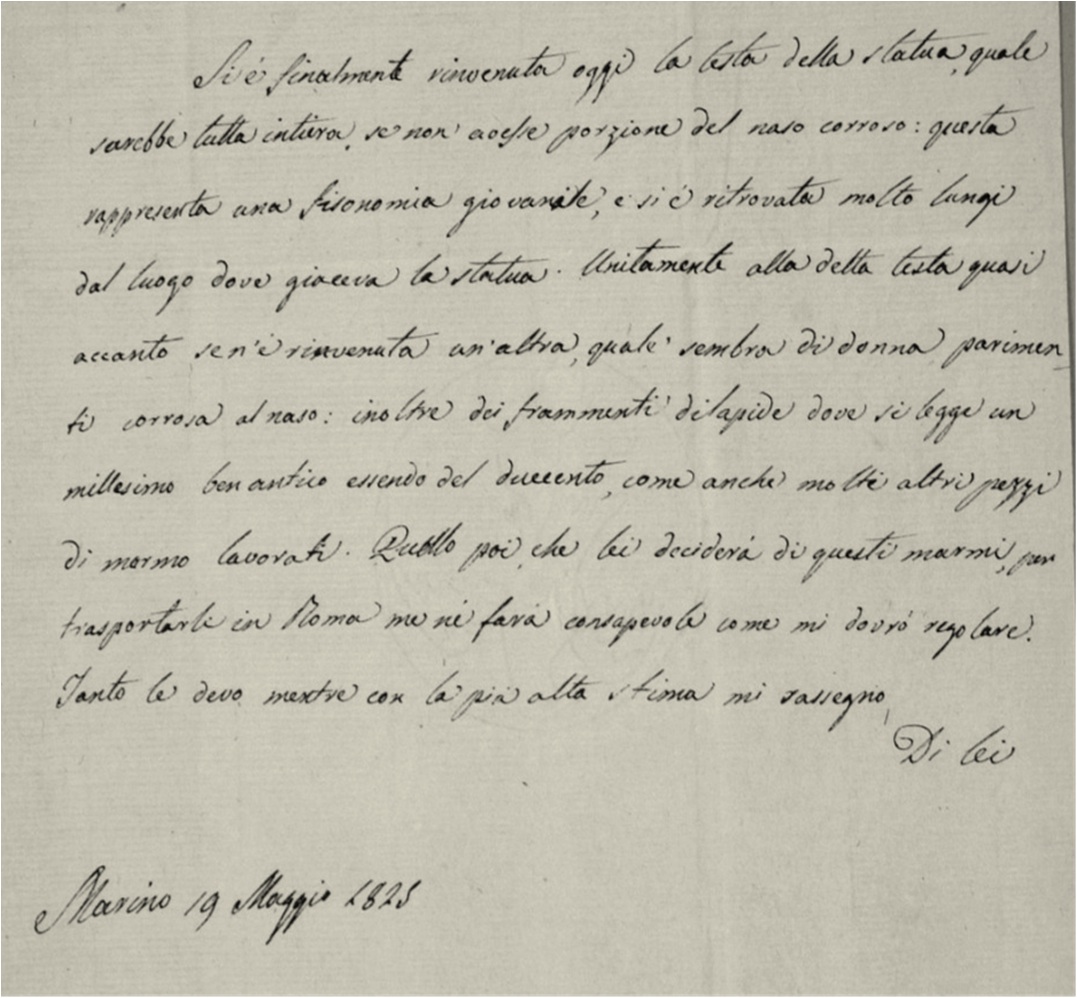 Si é finalmente rinvenuta oggi la testa della statua, quale
sarebbe tutta intiera, se non' avesse porzione del naso corroso: questa
rappresenta una fisonomia giovanile, e si é ritrovata molto lungi
dal luogo dove giaceva la statua. Unitamente alla detta testa quasi
accanto se n'é rinvenuta un'altra, quale sembra di donna parimen_
ti corrosa al naso: inoltre dei frammenti di lapide dove si legge un
millesimo ben antico essendo del duecento, come anche molti altri pezzi
di marmo lavorati. Quello poi, che lei deciderá di questi marmi, per
trasportarli in Roma me né fará consapevole come mi dovró regolare.
Tanto le devo mentre con la piú alta stima mi rassegno
Di lei
Marino 19 Maggio 1825